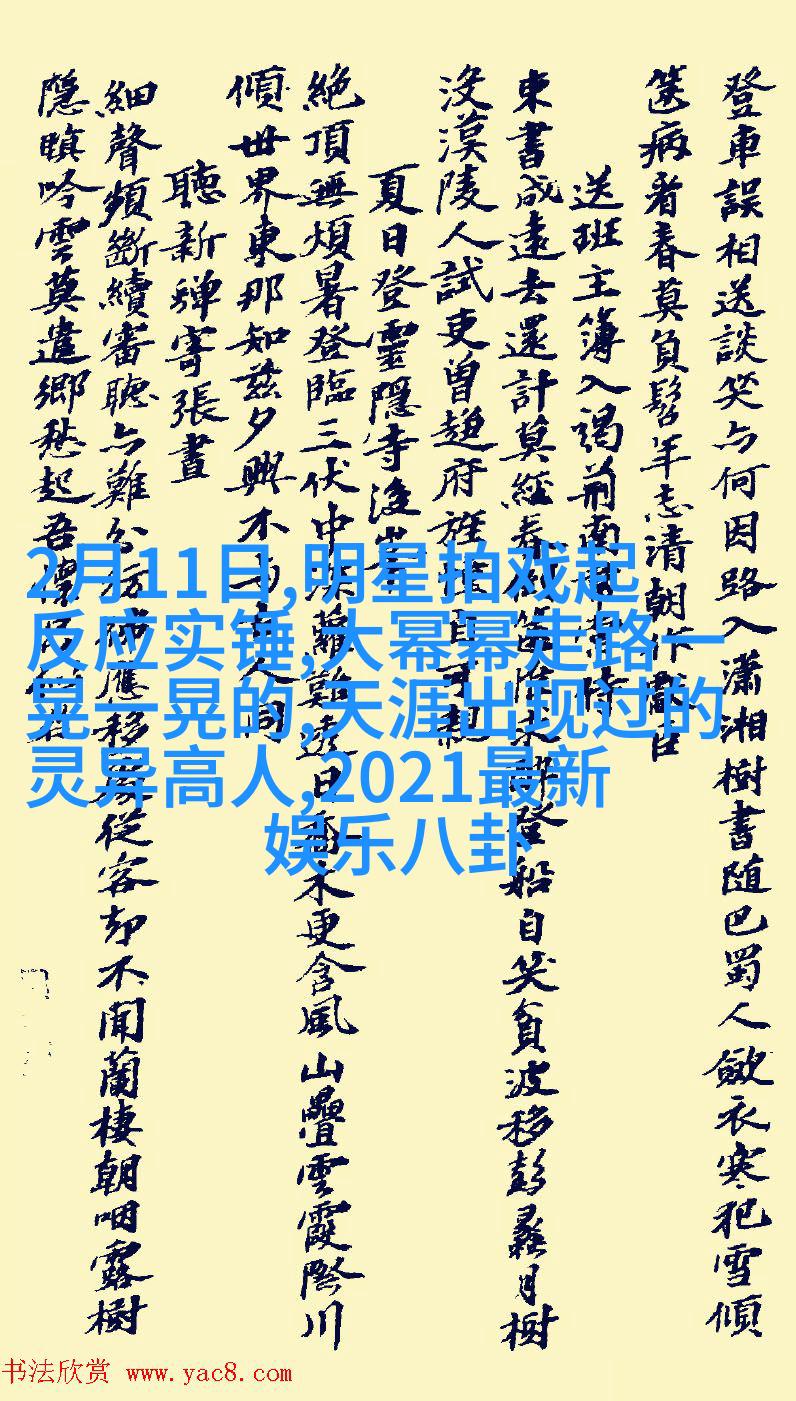 登車誤相送談笑亦何因路入瀟湘樹書随巴蜀人斂衣寒犯雪傾
篋病看春莫負髫年志清朝作獻臣
送班主簿入謁荆南
東書成遠去還計莫經春
登船自笑貧波移彭蠡月樹
没漢陵人試吏曾趨府旌
可親
夏日登靈隱寺後峯
絶頂無煩暑登臨三伏中深蘿難透日喬木更含風山疊雲霞際川
傾世界東那知兹夕興不与古人同
聽新蟬寄張晝
細聲頻斷續審聽亦難分
應移
處從容却不聞蘭棲朝咽露樹
隱暝吟雲莫遣鄉愁起吾懷只似君
2月11日,明星拍戏起
反应实锤,大幂幂走路一
晃一晃的,天涯出现过的
灵异高人,2021最新
娱乐八卦
书法欣赏 www.yac8.com